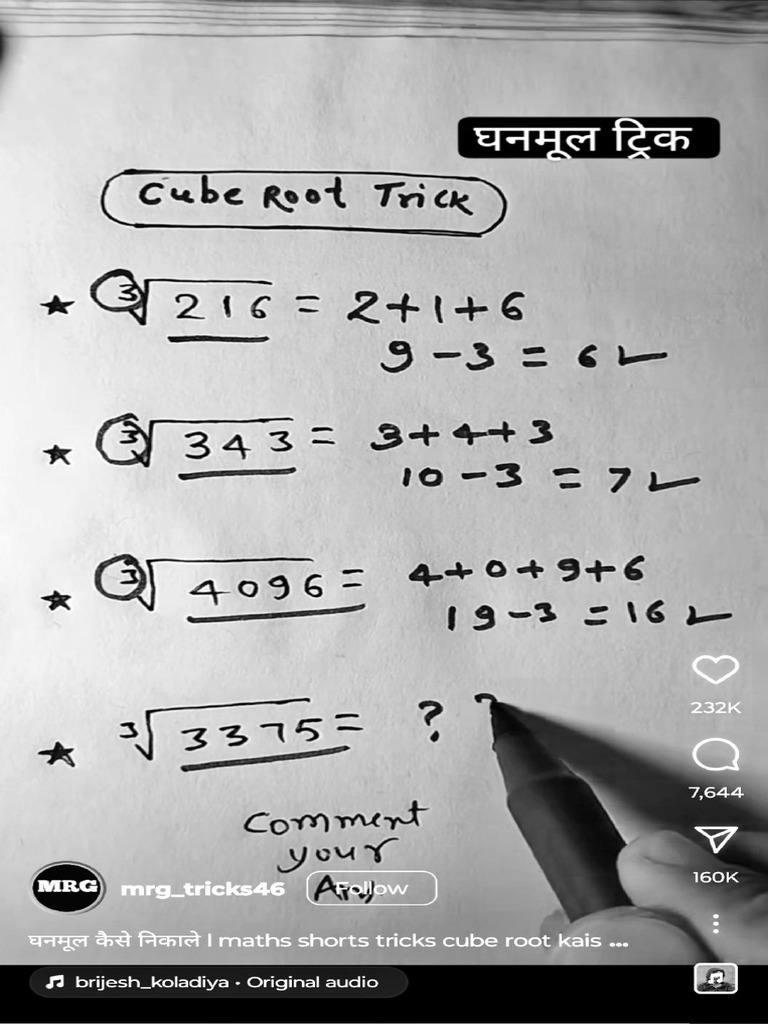 घनमूल ट्रिक
Cube Root Trick
★ ∛216 = 2+1+6
9-3 = 6 ✓
★ ∛343 = 3+4+3
10-3 = 7 ✓
★ ∛4096 = 4+0+9+6
19-3 = 16 ✓
★ ∛3375 = ? ?
232K
7,644
Comment
your
Ans
160K
MRG mrg_tricks46 Follow
घनमूल कैसे निकाले l maths shorts tricks cube root kais ...
brijesh_koladiya • Original audio